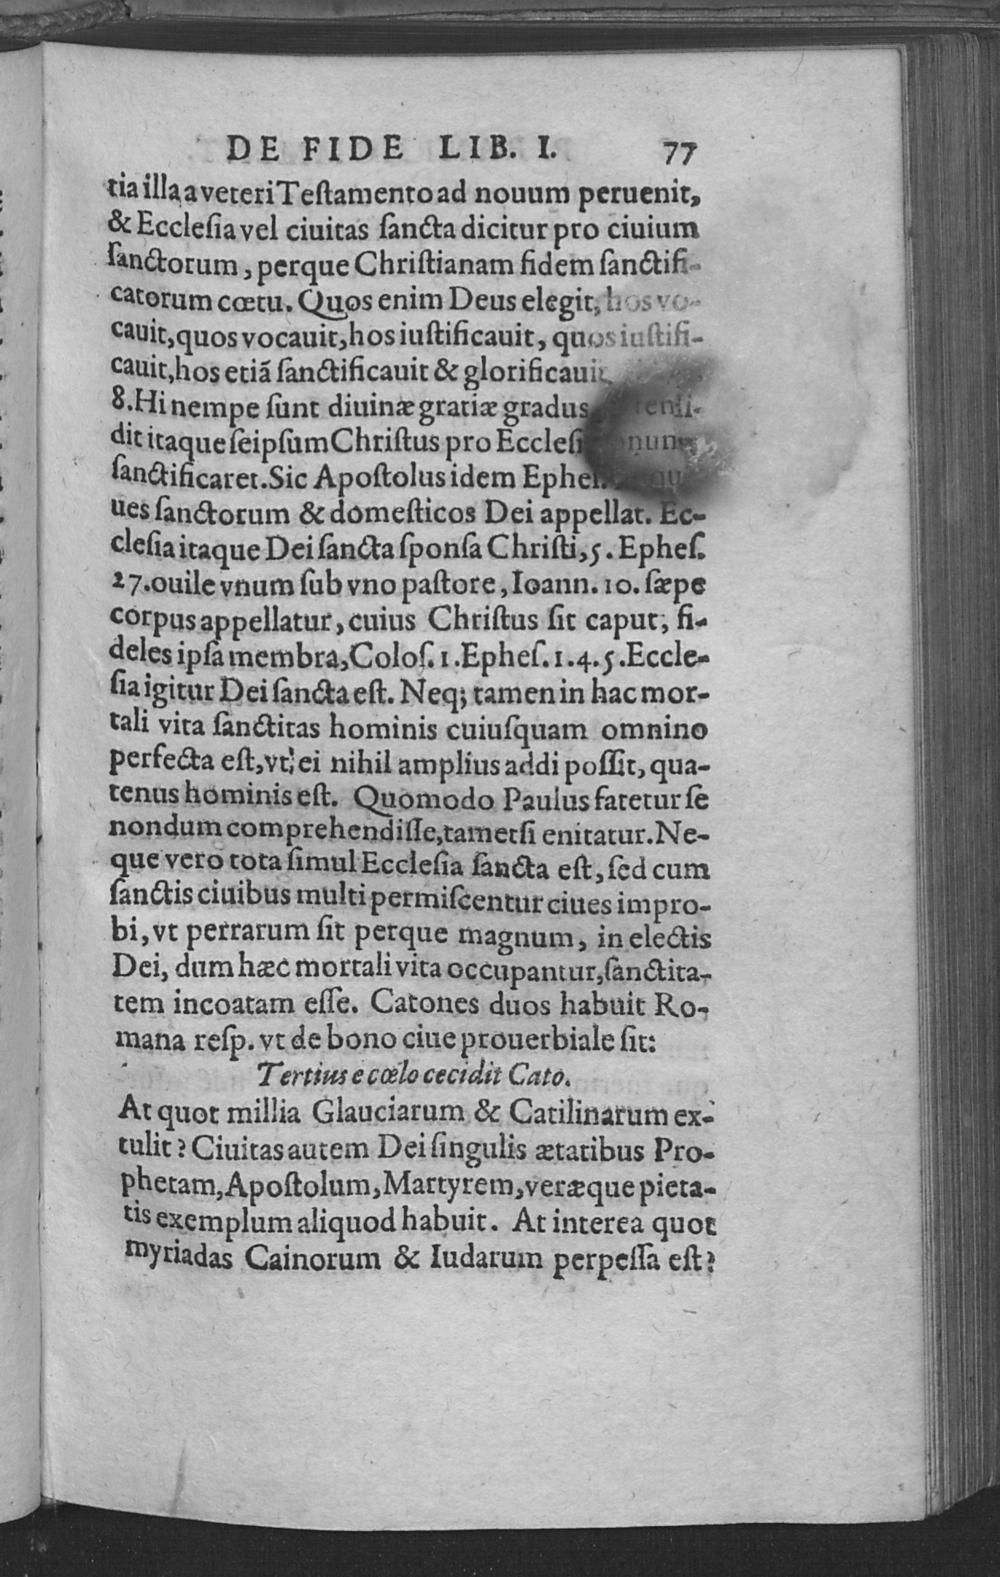 DE FIDE LIB. I. 77
tia illa a veteri Teſtamento ad nouum peruenit,
& Eccleſia vel ciuitas ſancta dicitur pro ciuium
ſanctorum, perque Chriſtianam fidem ſanctifi-
catorum cœtu. Quos enim Deus elegit, hos vo-
cauit, quos vocauit, hos iuſtificauit, quos iuſtifi-
cauit, hos etiã ſanctificauit & glorificauit
8. Hi nempe ſunt diuinæ gratiæ gradus
dit itaque ſeipſum Chriſtus pro
ſanctificaret. Sic Apoſtolus idem
ues ſanctorum & domeſticos Dei appellat. Ec-
cleſia itaque Dei ſancta ſponſa Chriſti, 5. Epheſ.
27. ouile vnum ſub vno paſtore, Ioann. 10. ſæpe
corpus appellatur, cuius Chriſtus ſit caput, fi-
deles ipſa membra, Coloſ. 1. Epheſ. 1. 4. 5. Eccle-
ſia igitur Dei ſancta eſt. Neq; tamen in hac mor-
tali vita ſanctitas hominis cuiuſquam omnino
perfecta eſt, vt ei nihil amplius addi poſſit, qua-
tenus hominis eſt. Quomodo Paulus fatetur ſe
nondum comprehendiſſe, tametſi enitatur. Ne-
que vero tota ſimul Eccleſia ſancta eſt, ſed cum
ſanctis ciuibus multi permiſcentur ciues impro-
bi, vt perrarum ſit perque magnum, in electis
Dei, dum hæc mortali vita occupantur, ſanctita-
tem incoatam eſſe. Catones duos habuit Ro-
mana reſp. vt de bono ciue prouerbiale ſit:
Tertius e cœlo cecidit Cato.
At quot millia Glauciarum & Catilinarum ex-
tulit? Ciuitas autem Dei ſingulis ætatibus Pro-
phetam, Apoſtolum, Martyrem, veræque pieta-
tis exemplum aliquod habuit. At interea quot
myriadas Cainorum & Iudarum perpeſſa eſt?